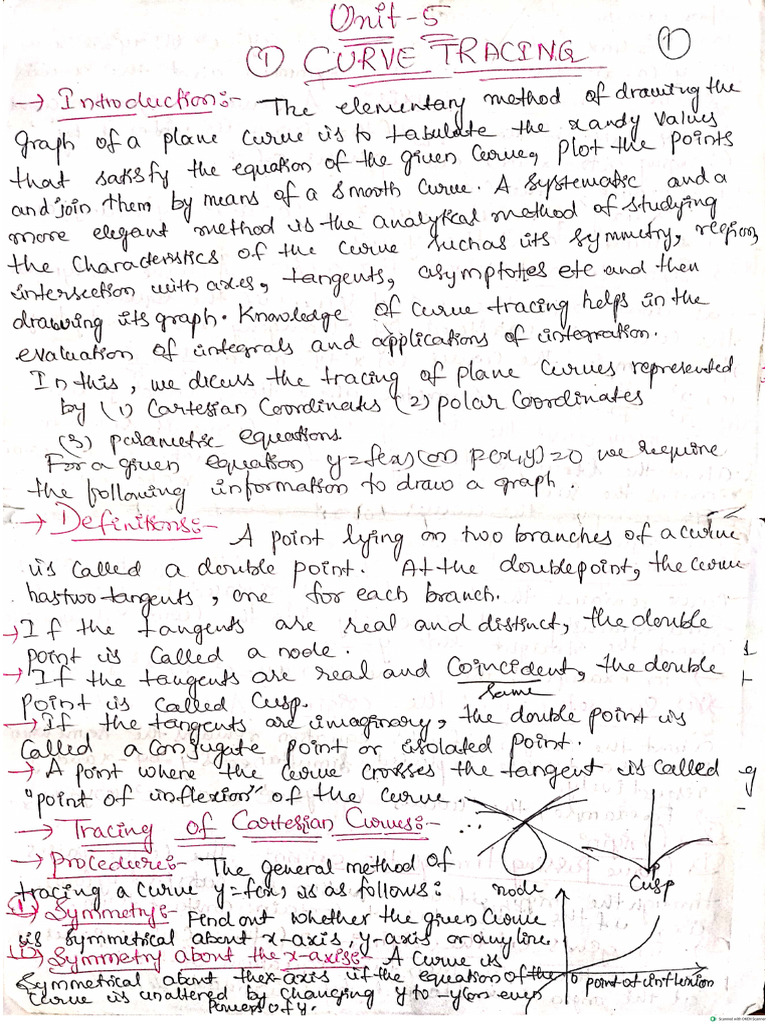 Unit-5
① CURVE TRACING ①
→ Introduction:- The elementary method of drawing the
graph of a plane curve is to tabulate the x and y values
that satisfy the equation of the given curve, plot the points
and join them by means of a smooth curve. A systematic and a
more elegant method is the analytical method of studying
the characteristics of the curve such as its symmetry, region,
intersection with axes, tangents, asymptotes etc and then
drawing its graph. Knowledge of curve tracing helps in the
evaluation of integrals and applications of integration.
In this, we dicuss the tracing of plane curves represented
by (1) Cartesian Coordinates (2) polar coordinates
(3) parametric equations.
For a given equation y=f(x) (or) F(x,y)=0 we require
the following information to draw a graph.
→ Definitions:- A point lying on two branches of a curve
is called a double point. At the double point, the curve
has two tangents, one for each branch.
→ If the tangents are real and distinct, the double
point is called a node.
→ If the tangents are real and Coincident, the double
same
point is called Cusp.
→ If the tangents are imaginary, the double point is
called a conjugate point or isolated point.
→ A point where the curve crosses the tangent is called
"point of inflexion" of the curve
→ Tracing of Cartesian Curves:-
→ Procedure:- The general method of
tracing a curve y=f(x) is as follows:
node
Cusp
① Symmetry:- Find out whether the given curve
is symmetrical about x-axis, y-axis or any line.
(i) Symmetry about the x-axis:- A curve is
symmetrical about the x-axis if the equation of the
0 point of inflexion
curve is unaltered by changing y to -y (or) even
powers of y.
Scanned with OKEN Scanner